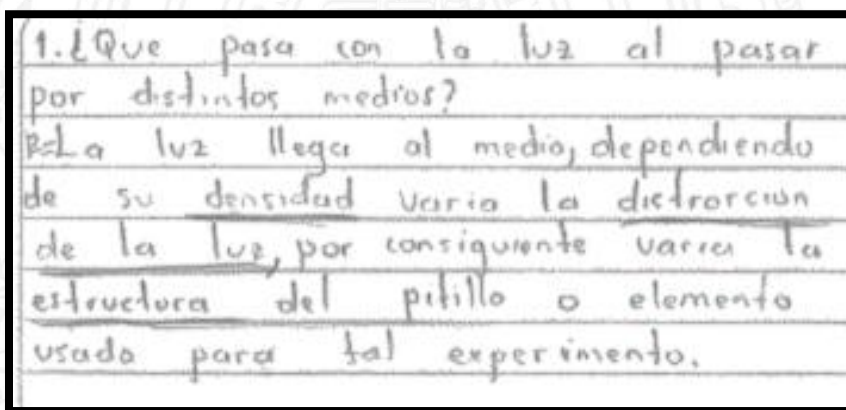 1. ¿Que pasa con la luz al pasar
por distintos medios?
R=La luz llega al medio, dependiendo
de su densidad varia la distrorcion
de la luz, por consiguiente varia la
estructura del pitillo o elemento
usado para tal experimento.